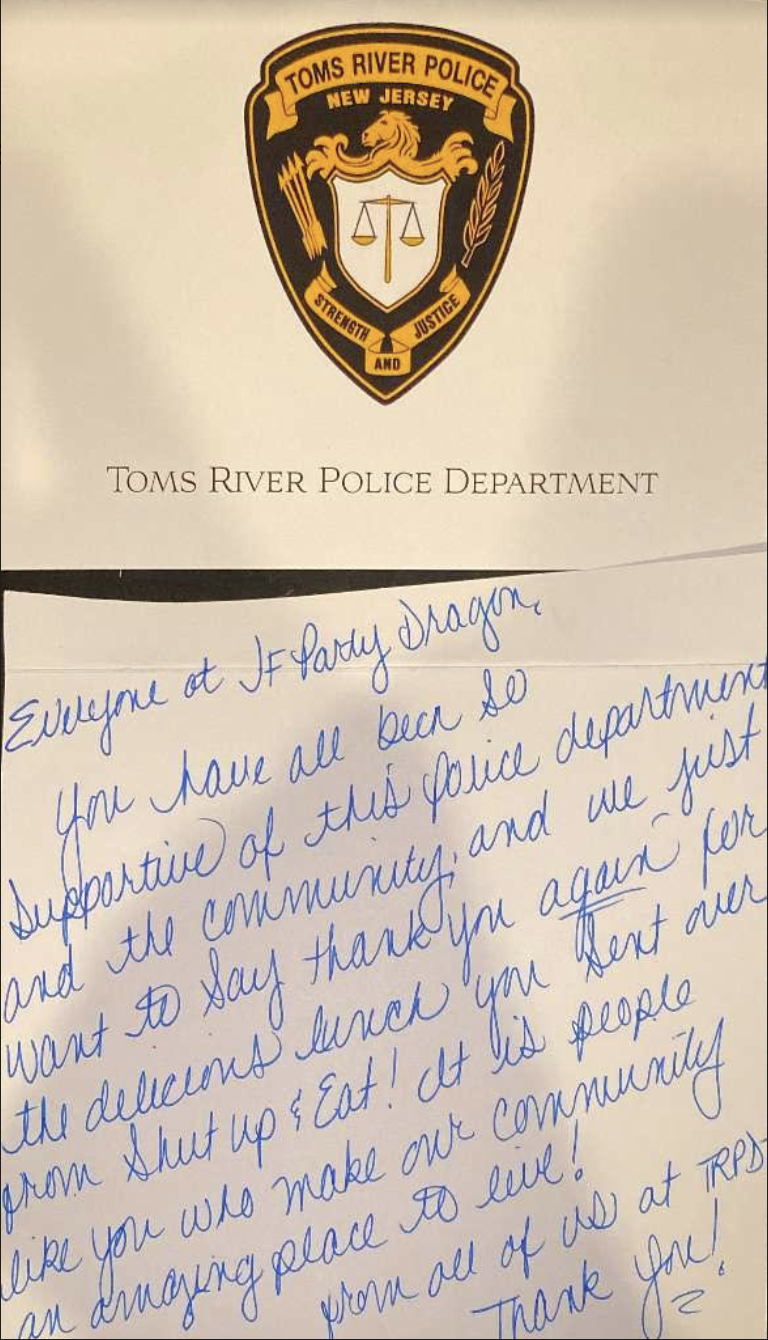 TOMS RIVER POLICE
NEW JERSEY
STRENGTH
AND
JUSTICE
TOMS RIVER POLICE DEPARTMENT
Everyone at JF Party Dragon,
You have all been so
supportive of this police department
and the community, and we just
want to say thank you again for
the delicious lunch you sent over
from Shut up & Eat! It is people
like you who make our community
an amazing place to live!
from all of us at TRPD-
Thank you!